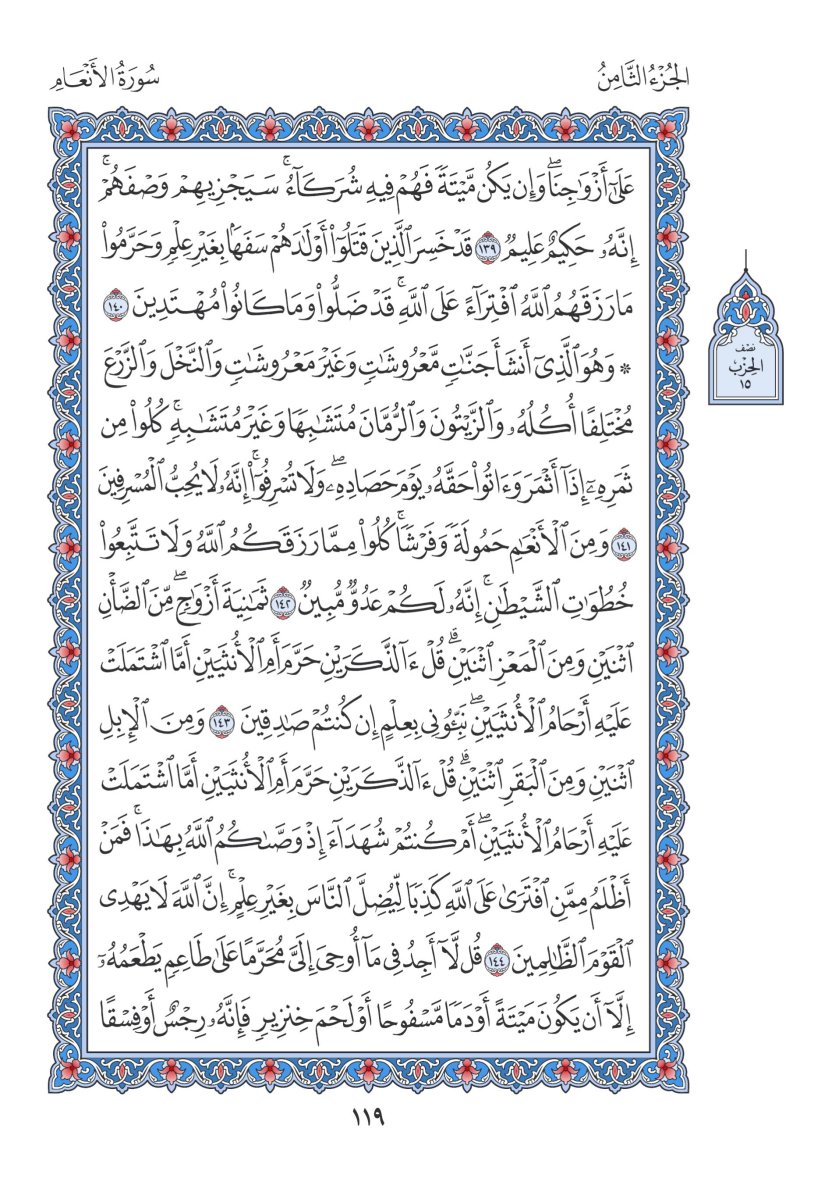 الجُزْءُ الثَّامِنُ
سُورَةُ الأَنْعَامِ
عَلَىٰٓ أَزْوَٰجِنَاۖ وَإِن يَكُن مَّيْتَةً فَهُمْ فِيهِ شُرَكَآءُۚ سَيَجْزِيهِمْ وَصْفَهُمْۚ
إِنَّهُۥ حَكِيمٌ عَلِيمٌ ١٣٩ قَدْ خَسِرَ ٱلَّذِينَ قَتَلُوٓاْ أَوْلَٰدَهُمْ سَفَهَۢا بِغَيْرِ عِلْمٍ وَحَرَّمُواْ
مَا رَزَقَهُمُ ٱللَّهُ ٱفْتِرَآءً عَلَى ٱللَّهِۚ قَدْ ضَلُّواْ وَمَا كَانُواْ مُهْتَدِينَ ١٤٠
* وَهُوَ ٱلَّذِىٓ أَنشَأَ جَنَّٰتٍ مَّعْرُوشَٰتٍ وَغَيْرَ مَعْرُوشَٰتٍ وَٱلنَّخْلَ وَٱلزَّرْعَ
مُخْتَلِفًا أُكُلُهُۥ وَٱلزَّيْتُونَ وَٱلرُّمَّانَ مُتَشَٰبِهًا وَغَيْرَ مُتَشَٰبِهٍۚ كُلُواْ مِن
ثَمَرِهِۦٓ إِذَآ أَثْمَرَ وَءَاتُواْ حَقَّهُۥ يَوْمَ حَصَادِهِۦۖ وَلَا تُسْرِفُوٓاْۚ إِنَّهُۥ لَا يُحِبُّ ٱلْمُسْرِفِينَ
١٤١ وَمِنَ ٱلْأَنْعَٰمِ حَمُولَةً وَفَرْشًاۚ كُلُواْ مِمَّا رَزَقَكُمُ ٱللَّهُ وَلَا تَتَّبِعُواْ
خُطُوَٰتِ ٱلشَّيْطَٰنِۚ إِنَّهُۥ لَكُمْ عَدُوٌّ مُّبِينٌ ١٤٢ ثَمَٰنِيَةَ أَزْوَٰجٍۖ مِّنَ ٱلضَّأْنِ
ٱثْنَيْنِ وَمِنَ ٱلْمَعْزِ ٱثْنَيْنِۗ قُلْ ءَآلذَّكَرَيْنِ حَرَّمَ أَمِ ٱلْأُنثَيَيْنِ أَمَّا ٱشْتَمَلَتْ
عَلَيْهِ أَرْحَامُ ٱلْأُنثَيَيْنِۖ نَبِّـُٔونِى بِعِلْمٍ إِن كُنتُمْ صَٰدِقِينَ ١٤٣ وَمِنَ ٱلْإِبِلِ
ٱثْنَيْنِ وَمِنَ ٱلْبَقَرِ ٱثْنَيْنِۗ قُلْ ءَآلذَّكَرَيْنِ حَرَّمَ أَمِ ٱلْأُنثَيَيْنِ أَمَّا ٱشْتَمَلَتْ
عَلَيْهِ أَرْحَامُ ٱلْأُنثَيَيْنِۖ أَمْ كُنتُمْ شُهَدَآءَ إِذْ وَصَّىٰكُمُ ٱللَّهُ بِهَٰذَاۚ فَمَنْ
أَظْلَمُ مِمَّنِ ٱفْتَرَىٰ عَلَى ٱللَّهِ كَذِبًا لِّيُضِلَّ ٱلنَّاسَ بِغَيْرِ عِلْمٍۚ إِنَّ ٱللَّهَ لَا يَهْدِى
ٱلْقَوْمَ ٱلظَّٰلِمِينَ ١٤٤ قُل لَّآ أَجِدُ فِى مَآ أُوحِىَ إِلَىَّ مُحَرَّمًا عَلَىٰ طَاعِمٍ يَطْعَمُهُۥٓ
إِلَّآ أَن يَكُونَ مَيْتَةً أَوْ دَمًا مَّسْفُوحًا أَوْ لَحْمَ خِنزِيرٍ فَإِنَّهُۥ رِجْسٌ أَوْ فِسْقًا
نصف
الحزب
١٥
١١٩